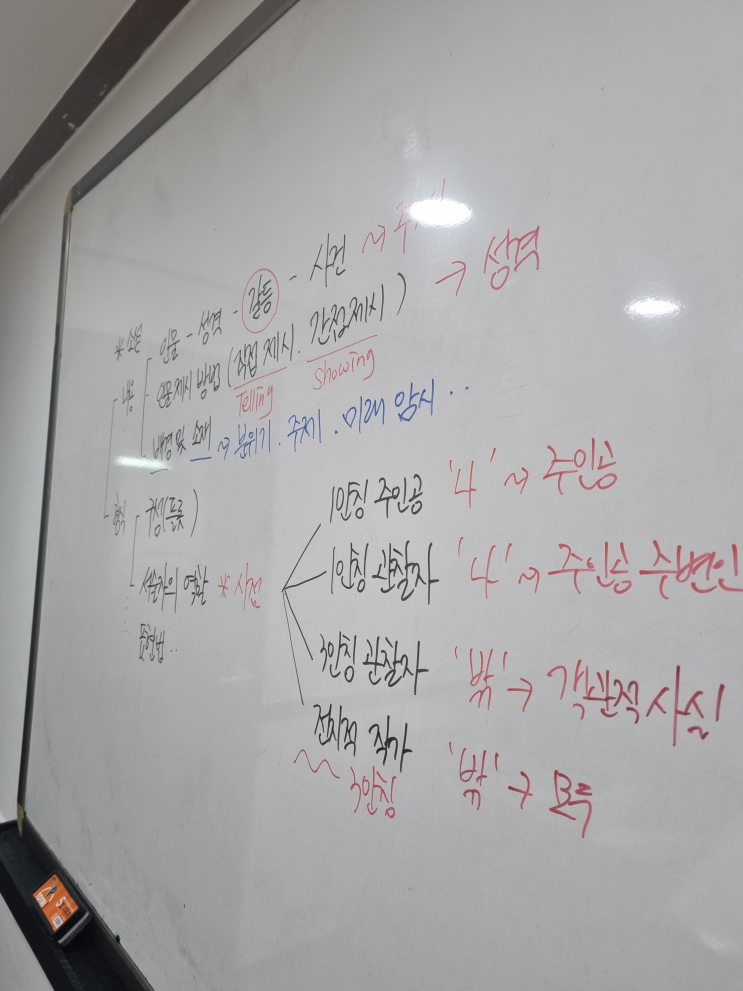 * 소설
내용
인물 - 성격 - 갈등 - 사건 ~> 주제
인물 제시 방법 (직접 제시. 간접제시) → 성격
Telling Showing
배경 및 소재 ~> 분위기. 주제. 미래 암시..
형식
구성(플롯)
서술자의 역할 * 시점
문헌법..
1인칭 주인공 '나' ~> 주인공
1인칭 관찰자 '나' ~> 주인공 주변인
3인칭 관찰자 '밖' → 객관적 사실
전지적 작가 '밖' → 모두
3인칭